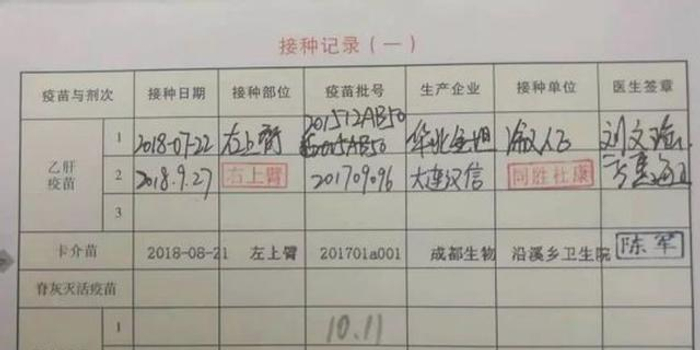 接种记录（一）
疫苗与剂次 接种日期 接种部位 疫苗批号 生产企业 接种单位 医生签章
乙肝疫苗 1 2018-07-22 左上臂 201512AB50
2 2018.9.27 右上臂 201709096 大连汉信 同胜社康
3
卡介苗 2018-08-21 左上臂 201701a001 成都生物 沿溪乡卫生院 陈军
脊灰灭活疫苗
1 10.11